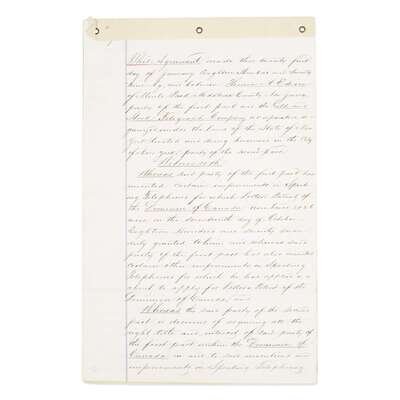 This Agreement made this twenty first
day of January Eighteen Hundred and Seventy
by and between Thomas A Edison
of Menlo Park Middlesex County New Jersey
party of the first part and the
Stock Telegraph Company a corporation
organized under the laws of the State of New
York located and doing business in the City
of New York party of the second part
Witnesseth
Whereas said party of the first part has
invented certain improvements in Speak
ing Telephones for which Letters Patent of the
Dominion of Canada numbered
were on the seventeenth day of October
Eighteen Hundred and Seventy
duly granted to him and whereas said
party of the first part has also invented
certain other improvements in Speaking
Telephones for which he has applied or is
about to apply for Letters Patent of the
Dominion of Canada and
Whereas the said party of the second
part is desirous of acquiring all the
right title and interest of said party of
the first part within the Dominion of
Canada in and to said inventions and
improvements in Speaking Telephones